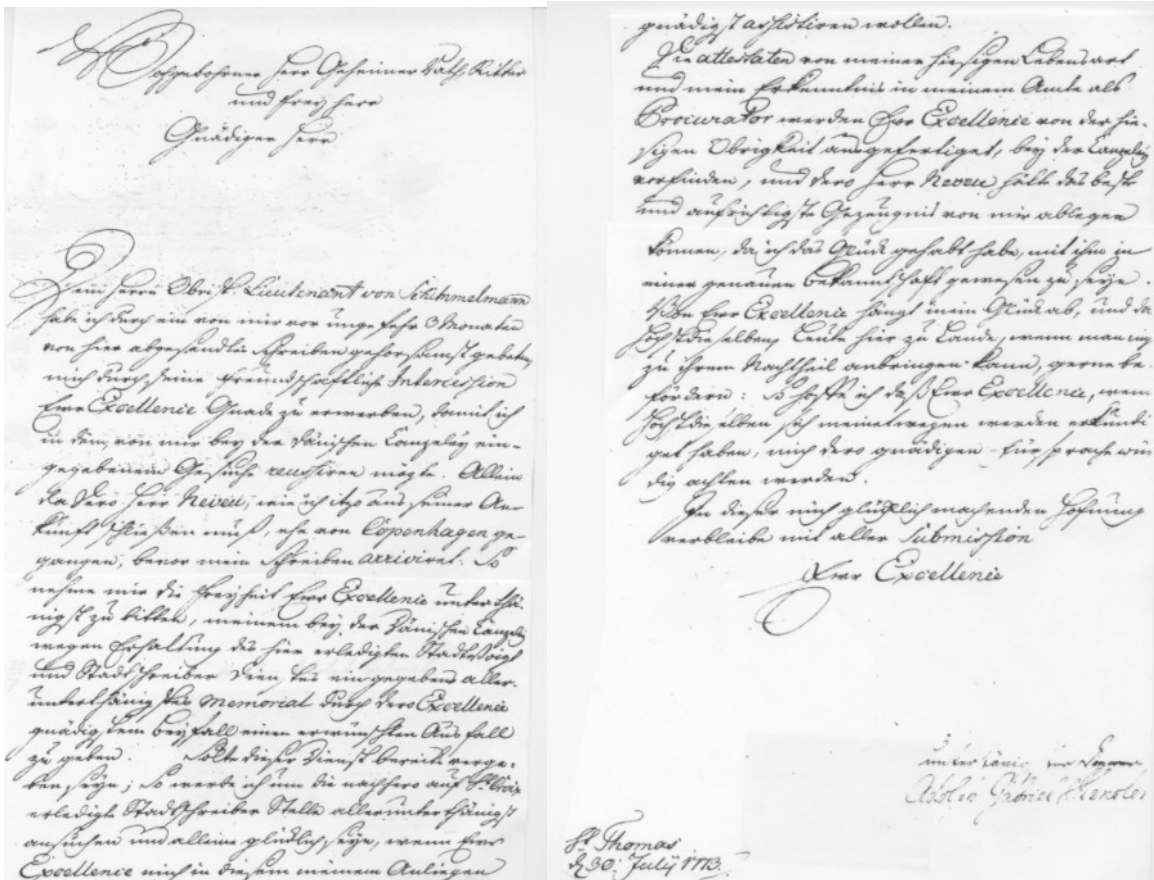 Wohgebohrner Herr Geheimer Rath, Ritter
und Frey Herr
Gnädiger Herr
Dem Herrn Obrist Lieutenant von Schimmelmann
habe ich durch ein von mir vor ungefehr 3 Monaten
von hier abgesandtes Schreiben gehorsamst gebeten,
mich durch seine freundschaftliche Intercession
Ewr Excellence Gnade zu erwerben, damit ich
in dem von mir bey der Dänischen Canzeley ein-
gegebenem Gesuche reussiren mögte. Allein
da Dero Herr Neveu, wie ich itzo aus seiner An-
kunft schließen muß, ehe von Copenhagen ge-
gangen, bevor mein Schreiben arriviret: So
nehme mir die Freyheit Ewr Excellence unterthä-
nigst zu bitten, meinem bey der Dänischen Canzeley
wegen Erhaltung des hier erledigten Stadtvoigt
und Stadtschreiber Dienstes eingegebenes aller-
unterthänigstes Memorial durch Dero Excellence
gnädigstem Beyfall einen erwünschten Ausfall
zu geben. Solte dieser Dienst bereits verge-
ben seyn; so werde ich um die nachhero auf St Croix
erledigte Stadtschreiber Stelle allerunterthänigst
ansuchen und alleine glücklich seyn, wenn Ewr
Excellence mich in diesem meinem Anliegen
gnädigst assistiren wollen.
Die attestaten von meiner hiesigen Lebensart
und mein Erkenntnis in meinem Amte als
Procurator werden Ewr Excellence von der hie-
sigen Obrigkeit ausgefertiget, bey der Canzeley
vorfinden, und dero Herr Neveu hätte das beste
und aufrichtigste Gezeugnis von mir ablegen
können, da ich das Glück gehabt habe, mit ihm in
einer genauen bekanntschaft gewesen zu seyn.
Von Ewr Excellence hängt mein Glück ab, und da
Höchstdieselben, Leute hier zu Lande, wenn man
zu ihrem Nachtheil anbringen kann, gerne be-
fördern: So hoffe ich daß Ewr Excellence, wenn
Höchstdieselben sich meinetwegen werden erkundi
get haben, mich dero gnädigen Fürsprache wür
dig achten werden.
In dieser mich glücklich machenden Hofnung
verbleibe mit aller Submission
Ewr Excellence
Gabriel
St Thomas
d 30. July 1773.